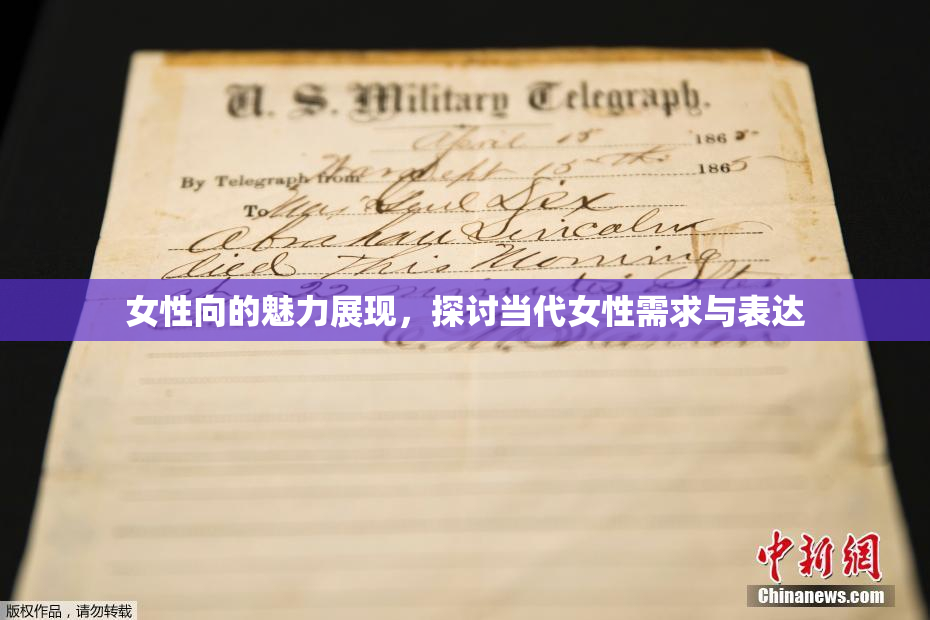 U. S. Military Telegraph.
April 15 1865
By Telegraph from War Dept 15th 1865
To Maj Genl Dix
Abraham Lincoln
died This Morning
at 22 minutes after
女性向的魅力展现，探讨当代女性需求与表达
E. M. Stanton
中新網
Chinanews.com
版权作品，请勿转载